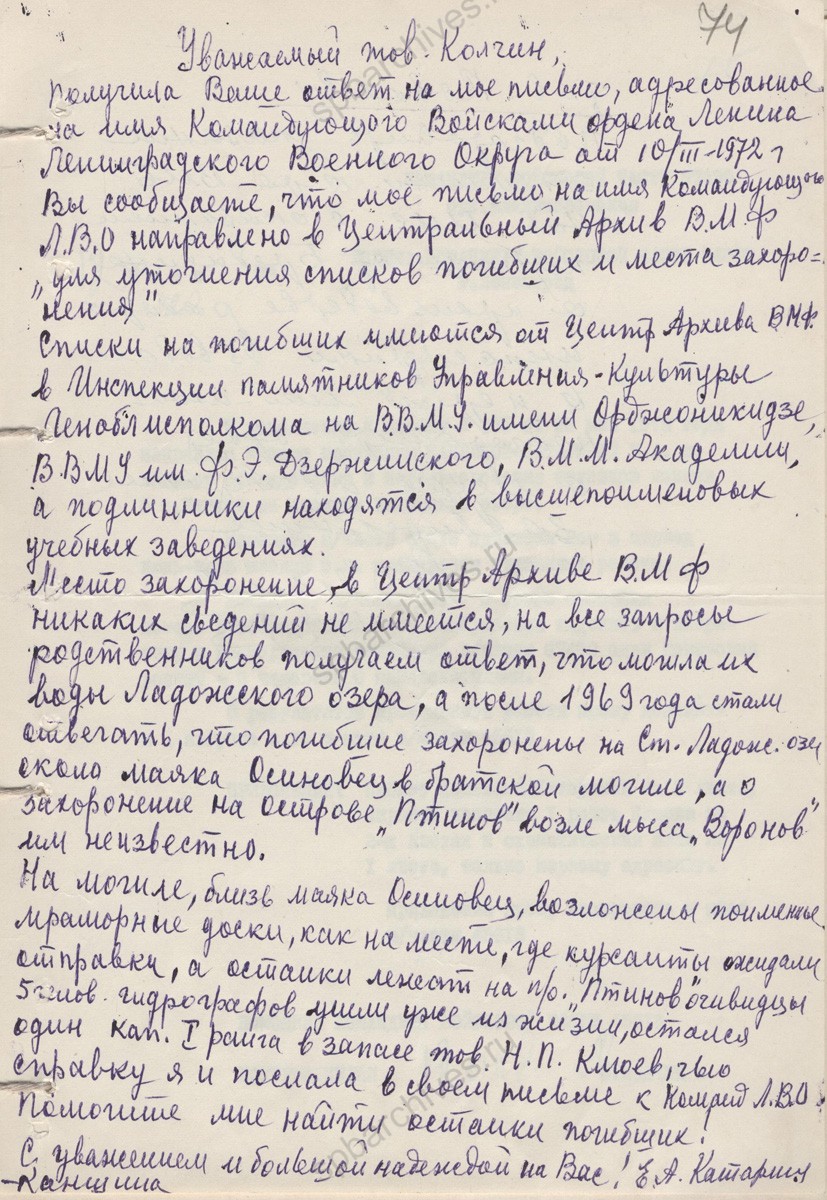 74
Уважаемый тов. Колчин,
получила Ваше ответ на мое письмо, адресованное
на имя Командующого Войсками ордена Ленина
Ленинградского Военного Округа от 10/III-1972 г
Вы сообщаете, что мое письмо на имя Командующого
Л.В.О направлено в Центральный Архив В.М.Ф
„для уточнения списков погибших и места захоро-
нения"
Списки на погибших имеются от Центр Архива ВМФ.
в Инспекции памятников Управления-Культуры
Леноблисполкома на В.В.М.У. имени Орджоникидзе,
В.ВМУ им. Ф.Э. Дзержинского, В.М.М. Академии,
а подлинники находятся в высшепоименовых
учебных заведениях.
Место захоронение, в Центр Архиве В.М Ф
никаких сведений не имеется, на все запросы
родственников получаем ответ, что могила их
воды Ладожского озера, а после 1969 года стали
отвечать, что погибшие захоронены на Ст. Ладож. озер
около маяка Осиновец в братской могиле, а о
захоронение на острове „Птинов" возле мыса „Воронов"
им неизвестно.
На могиле, близь маяка Осиновец, возложены поименные
мраморные доски, как на месте, где курсанты ожидали
отправки, а останки лежат на п/о. „Птинов" очивидцы
5 челов. гидрографов ушли уже из жизни, остался
один кап. I ранга в запасе тов. Н.П. Клюев, чью
справку я и послала в своем письме к Команд Л.В.О.
Помогите мне найти останки погибших!
С уважением и большой надеждой на Вас! Е.А. Катарин
-Каншина
spbarchives.ru
spbarchives.ru
spbarchives.ru
spbarchives.ru
spbarchives.ru